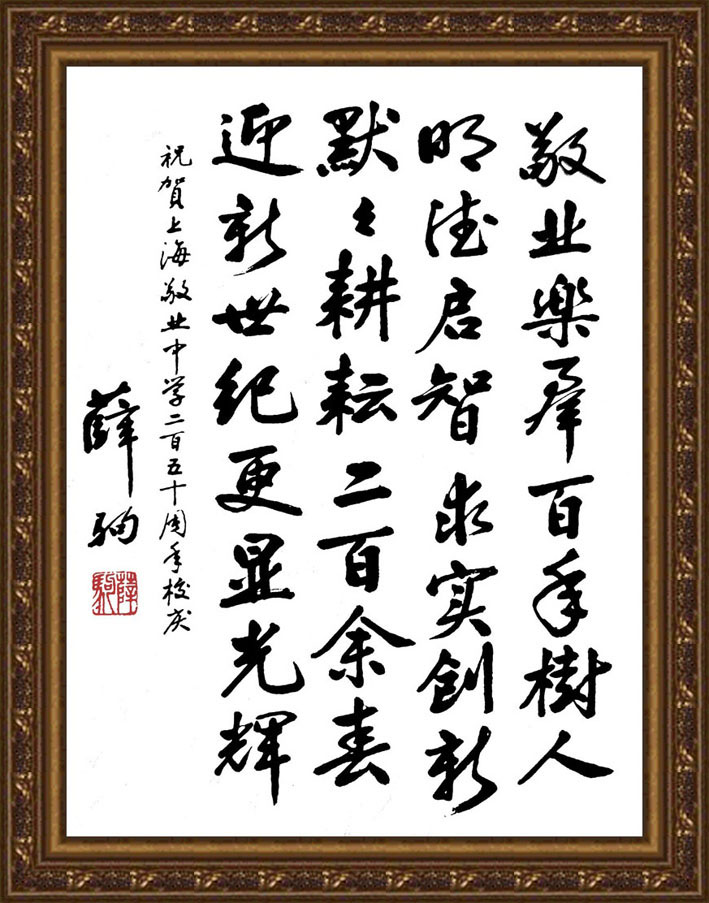 敬业樂羣百年樹人
明德启智求实创新
默々耕耘二百余春
迎新世纪更显光辉
祝贺上海敬业中学二百五十周年校庆
薛驹
薛驹